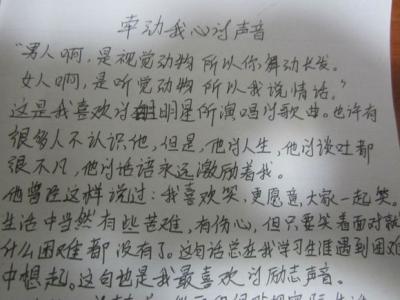 牵动我心的声音
“男人啊,是视觉动物 所以你舞动长发。
女人啊,是听觉动物 所以我说情话。”
这是我喜欢的明星所演唱的歌曲。也许有
很多人不认识他,但是,他的人生,他的谈吐都
很不凡,他的话语永远激励着我。
他曾经这样说过:我喜欢笑,更愿意大家一起笑。
生活中当然有些苦难,有伤心,但只要笑着面对就
什么困难都没有了。这句话总在我学习生涯遇到困难
中想起。这句也是我最喜欢的励志声音。